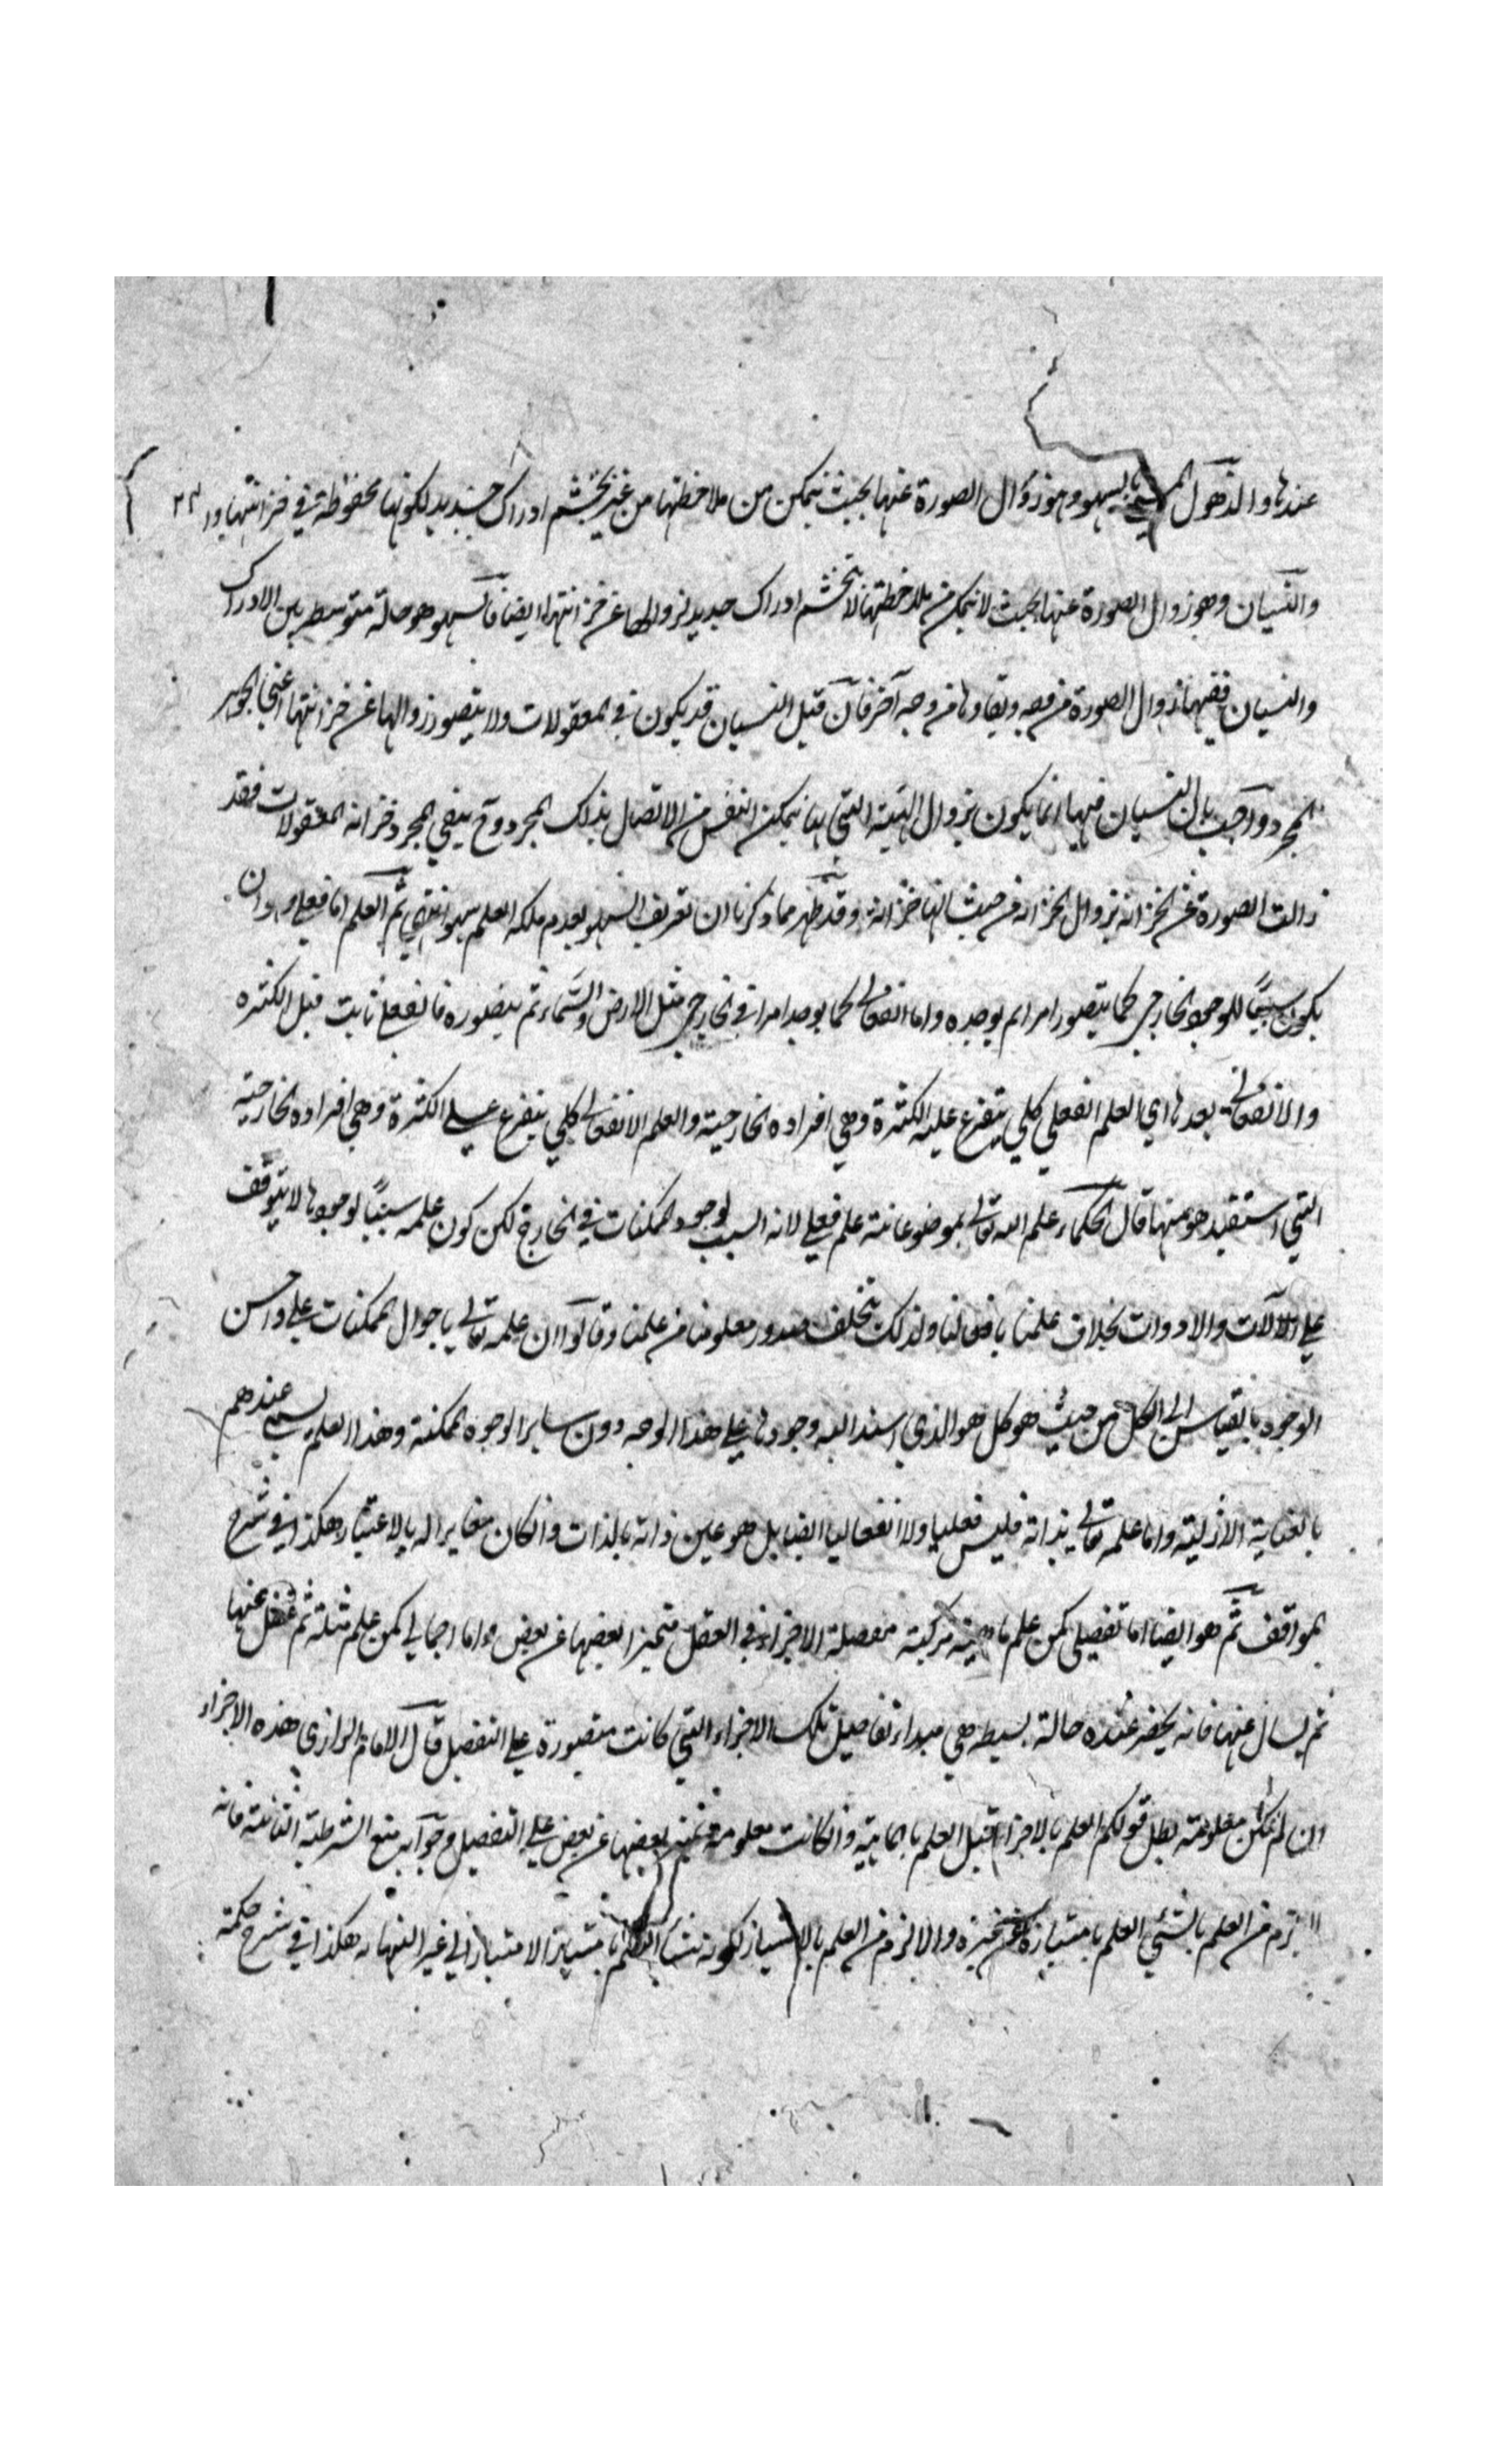 عندها والذهول المسمى بالسهو وهو زوال الصورة عنها بحيث يتمكن من ملاحظتها من غير تجشم ادراك جديد لكونها محفوظة في خزانتها
والنسيان وهو زوال الصورة عنها بحيث لا يتمكن من ملاحظتها الا بتجشم ادراك جديد لزوالها عن خزانتها ايضا فالسهو هو حالة متوسطة بين الادراك
والنسيان ففيها زوال الصورة من وجه وبقاوها من وجه آخر فان قيل النسيان قد يكون في المعقولات ولا يتصور زوالها عن خزانتها اعني الجوهر
المجرد واجيب بان النسيان فيها انما يكون بزوال الهيئة التي بها يتمكن النفس من الاتصال بذلك المجرد وح يبقي المجرد خزانة المعقولات فقد
زالت الصورة عن الخزانة بزوال الخزانة من حيث انها خزانة وقد ظهر مما ذكرنا ان تعريف السهو بعدم ملكة العلم سهو انتهي ثم العلم اما فعلي وهو ان
يكون سببًا للوجود الخارجي كما يتصور امرا ثم يوجده واما انفعالي كما يوجد امرا في الخارج مثل الارض والسماء ثم يتصوره فالفعلي ثابت قبل الكثرة
والانفعالي بعدها اي العلم الفعلي كلي يتفرع عليه الكثرة وهي افراده الخارجية والعلم الانفعالي كلي يتفرع علي الكثرة وهي افراده الخارجية
التي استفيد هو منها قال الحكماء علم الله تعالى بمصنوعاته علم فعلي لانه السبب لوجود الممكنات في الخارج لكن كون علمه سببًا لوجودها لا يتوقف
علي الآلات والادوات بخلاف علمنا بافعالنا ولذلك يتخلف صدور معلومنا عن علمنا وقالوا ان علمه تعالى باحوال الممكنات علي احسن
الوجوه بالقياس الى الكل من حيث هو كل هو الذي استند اليه وجودها علي هذا الوجه دون ساير الوجوه الممكنة وهذا العلم يسمى عندهم
بالعناية الازلية واما علمه تعالى بذاته فليس فعليا ولا انفعاليا ايضا بل هو عين ذاته بالذات وان كان مغايرا له بالاعتبار هكذا في شرح
المواقف ثم هو ايضا اما تفصيلي كمن علم ماهية مركبة مفصلة الاجزاء في العقل متميزا بعضها عن بعض واما اجمالي كمن علم مثله ثم غفل عنها
ثم يسال عنها فانه يحضر عنده حالة بسيطة هي مبداء تفاصيل تلك الاجزاء التي كانت متصورة علي التفصيل قال الامام الرازي هذه الاجزاء
ان لم تكن معلومة بطل قولكم العلم بالاجزاء قبل العلم بالماهية وان كانت معلومة تميز بعضها عن بعض علي التفصيل وجوابه منع الشرطية الثانية فانه
لا يلزم من العلم بالشئي العلم بامتيازه عن غيره والا لزم من العلم بالامتياز لكونه شيئا العلم بامتياز الامتياز الي غير النهاية هكذا في شرح حكمة